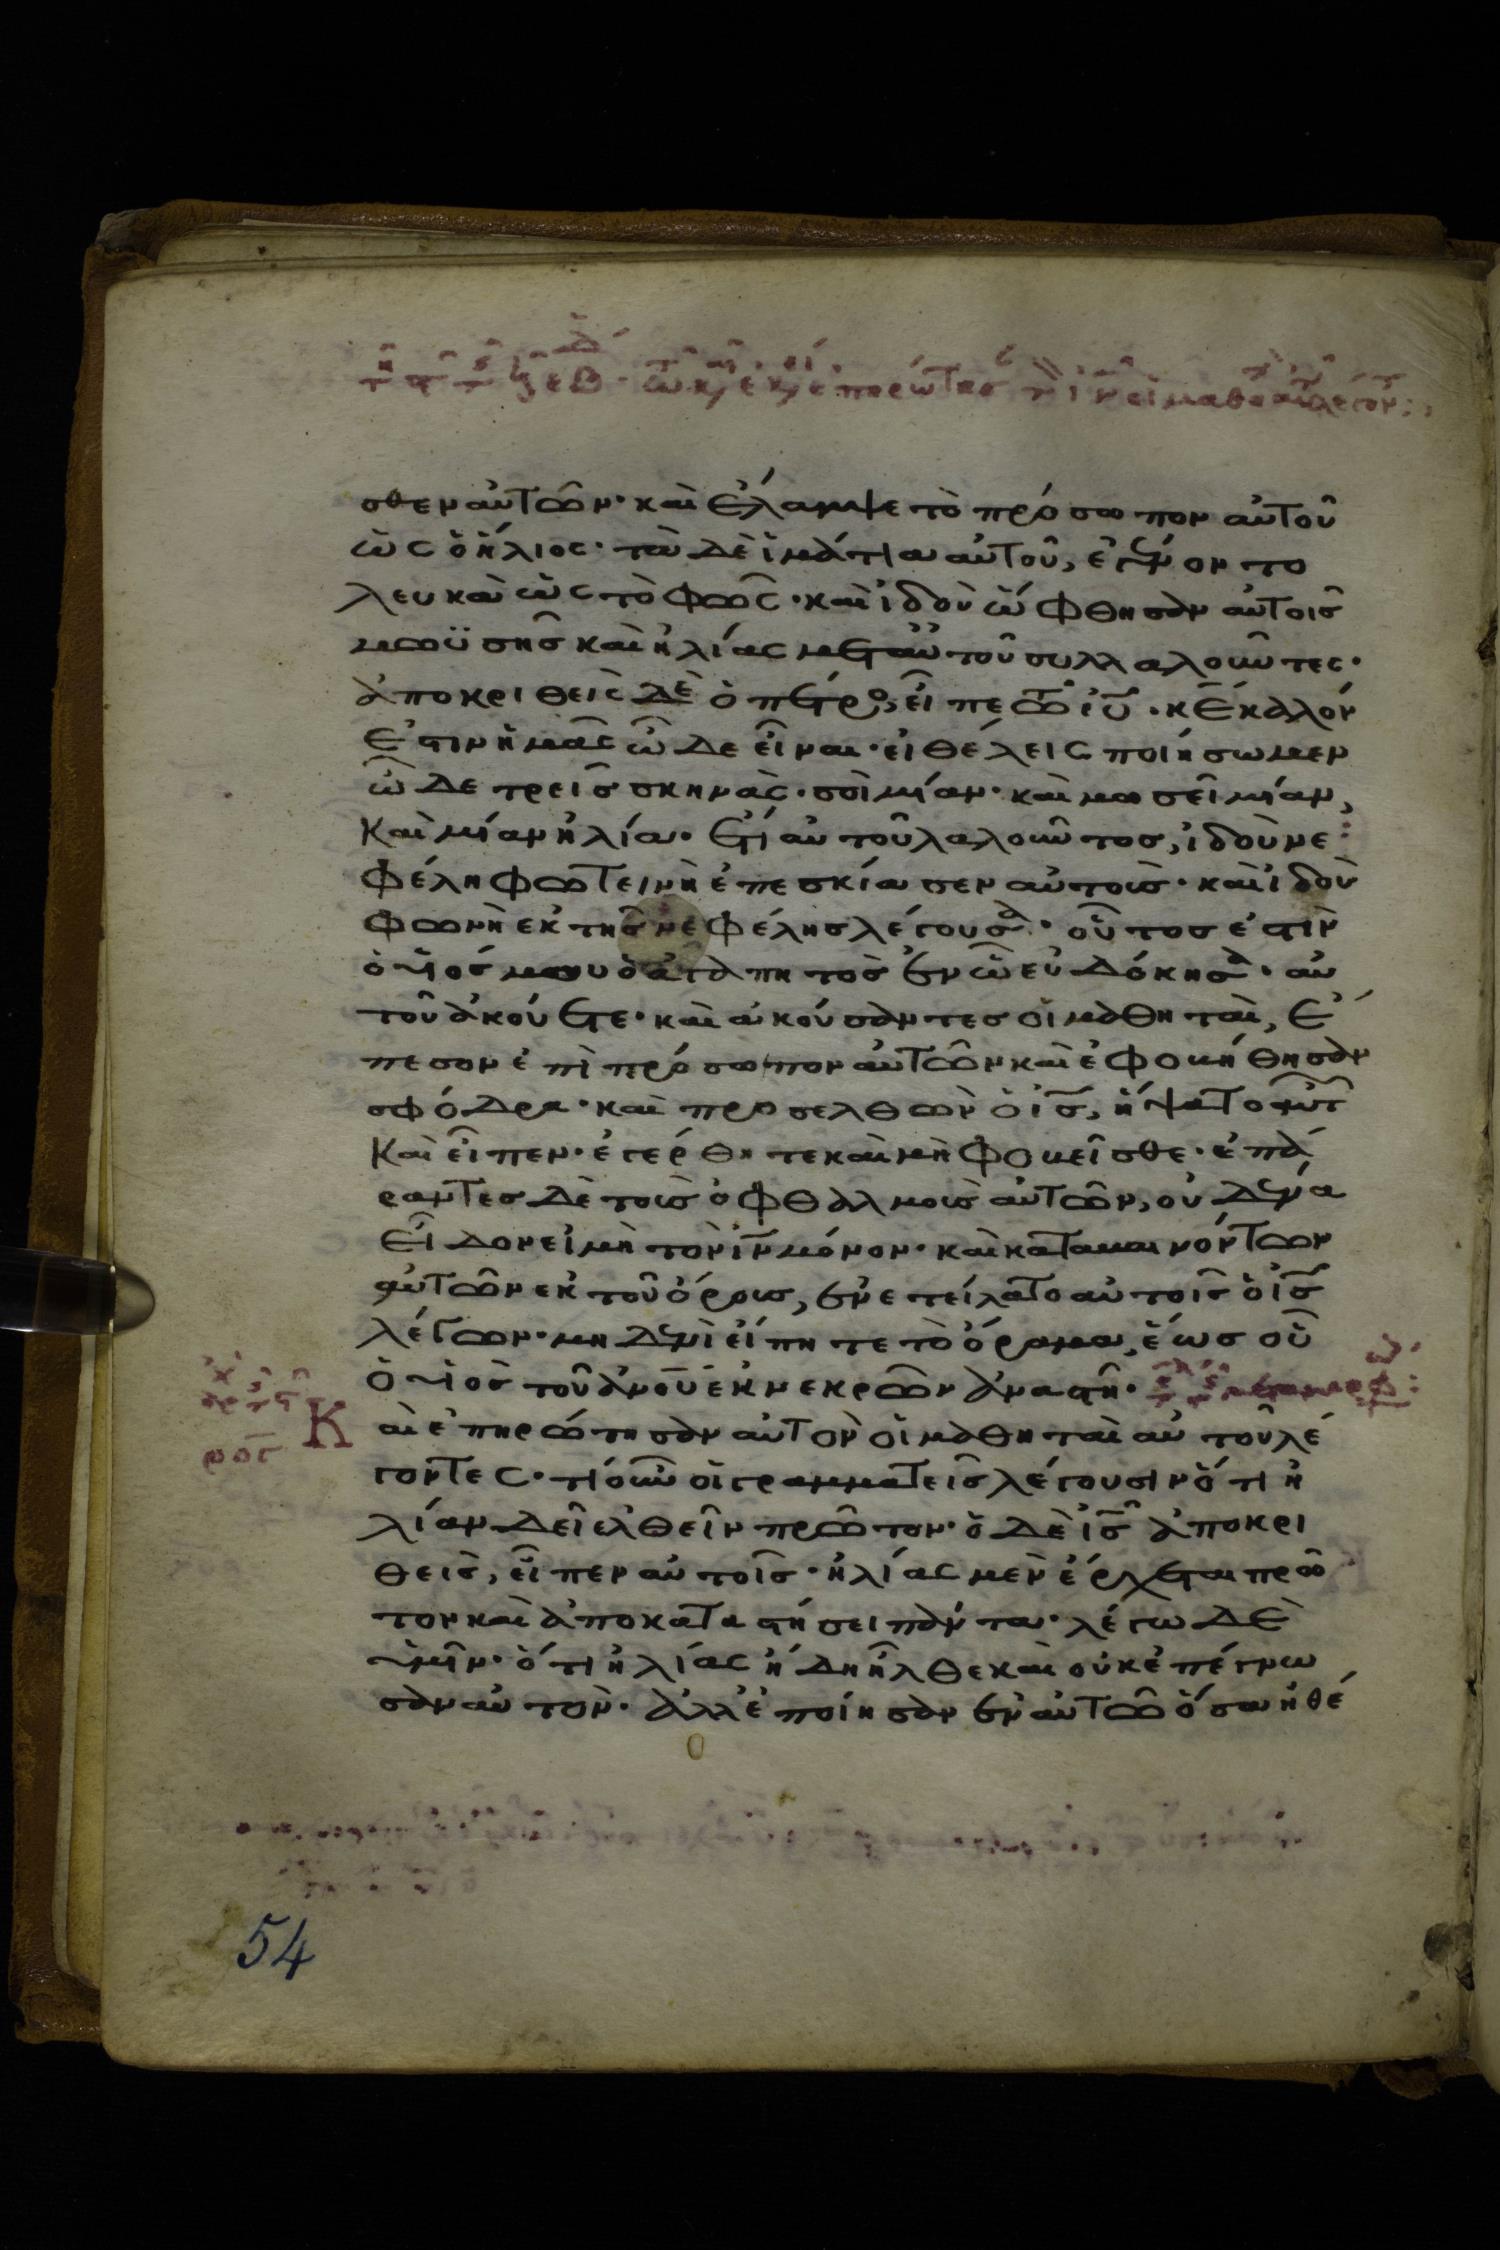 σθεν αὐτῶν· καὶ ἔλαμψε τὸ πρόσωπον αὐτοῦ
ὡς ὁ ἥλιος· τὰ δὲ ἱμάτια αὐτοῦ, ἐγένοντο
λευκὰ ὡς τὸ φῶς· καὶ ἰδοὺ ὤφθησαν αὐτοῖς
μωϋσῆς καὶ ἠλίας μετ' αὐτοῦ συλλαλοῦντες·
ἀποκριθεὶς δὲ ὁ πέτρος, εἶπε τῶ ἰυ· κε καλόν
ἐστιν ἡμᾶς ὧδε εἶναι· εἰ θέλεις ποιήσωμεν
ὧδε τρεῖς σκηνὰς· σοὶ μίαν· καὶ μωσεῖ μίαν,
καὶ μίαν ἠλία· ἔτι αὐτοῦ λαλοῦντος, ἰδοὺ νε
φέλη φωτεινὴ ἐπεσκίασεν αὐτοὺς· καὶ ἰδοὺ
φωνὴ ἐκ τῆς νεφέλης λέγουσα· οὗτος ἐστὶν
ὁ υἱός μου ὁ ἀγαπητὸς ἐν ὧ εὐδόκησα· αὐ
τοῦ ἀκούετε· καὶ ἀκούσαντες οἱ μαθηταὶ, ἔ
πεσον ἐπὶ πρόσωπον αὐτῶν καὶ ἐφοβήθησαν
σφόδρα· καὶ προσελθὼν ὁ ις, ἥψατο αὐτ
καὶ εἶπεν· ἐγέρθητε καὶ μὴ φοβεῖσθε· ἐπά
ραντες δὲ τοὺς ὀφθαλμοὺς αὐτῶν, οὐδένα
εἶδον εἰ μὴ τὸν ιν μόνον· καὶ καταβαινόντων
αὐτῶν ἐκ τοῦ ὄρους, ἐνετείλατο αὐτοῖς ὁ ις
λέγων· μηδενὶ εἴπητε τὸ ὅραμα, ἕως οὗ
ὁ υἱὸς τοῦ ἀνου ἐκ νεκρῶν ἀναστῆ·
Καὶ ἐπηρώτησαν αὐτὸν οἱ μαθηταὶ αὐτοῦ λέ
γοντες· τί οὖν οἱ γραμματεῖς λέγουσιν ὅτι ἠ
λίαν δεῖ ἐλθεῖν πρῶτον· ὁ δὲ ις ἀποκρι
θεὶς, εἶπεν αὐτοῖς· ἠλίας μὲν ἔρχεται πρῶ
τον καὶ ἀποκαταστήσει πάντα· λέγω δὲ
ὑμῖν· ὅτι ἠλίας ἤδη ἦλθε καὶ οὐκ ἐπέγνω
σαν αὐτὸν· ἀλλ' ἐποίησαν ἐν αὐτῶ ὅσα ἠθέ
54